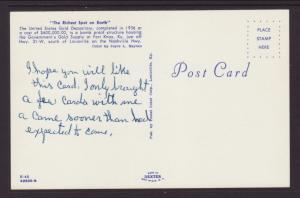 "The Richest Spot on Earth"
The United States Gold Depository, completed in 1936 at
a cost of $600,000.00, is a bomb proof structure housing
the Government's Gold Supply at Fort Knox, Ky., just off
Hwy. 31-W, south of Louisville on the Nashville Hwy.
Color by Frank L.
PLACE
STAMP
HERE
Post Card
I hope you will like
this Card. I only brought
a few Cards with me
a Came sooner than had
expected to come.
DEXTER